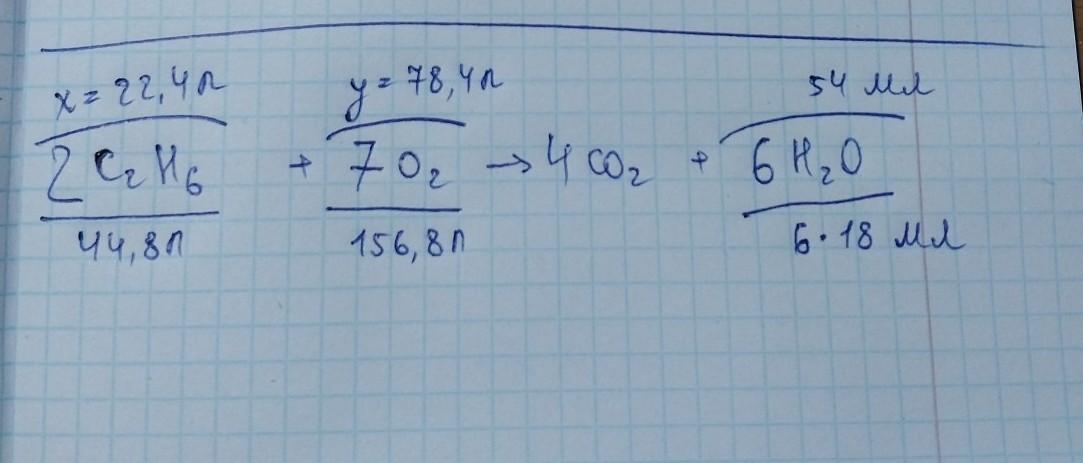 x = 22,4л y = 78,4л 54 мл
2 C₂H₆ + 7 O₂ → 4 CO₂ + 6 H₂O
44,8л 156,8л 6·18 мл